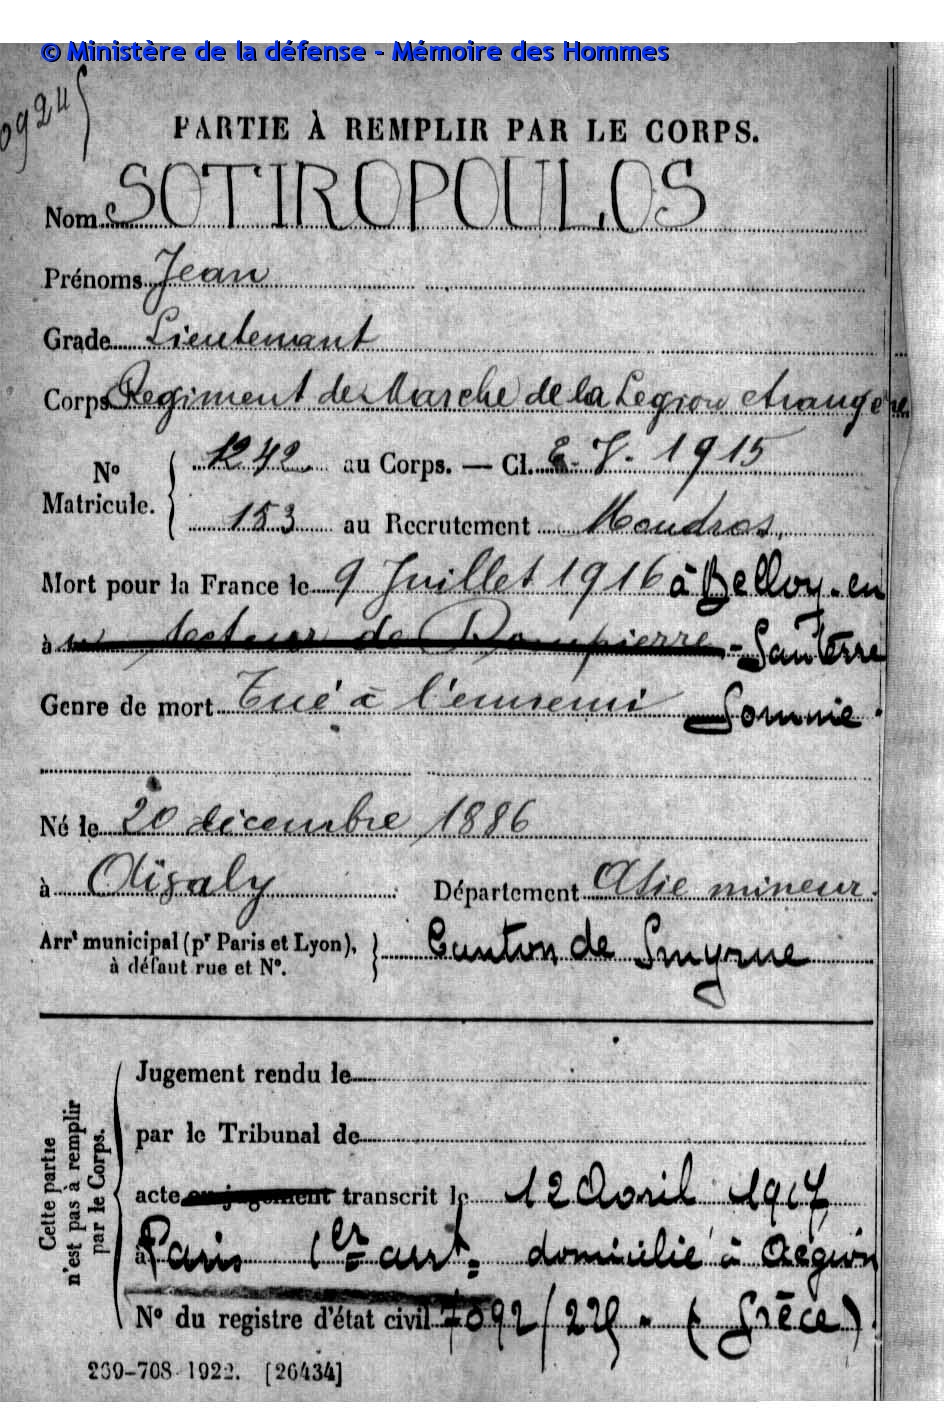 © Ministère de la défense - Mémoire des Hommes
PARTIE À REMPLIR PAR LE CORPS.
Nom SOTIROPOULOS
Prénoms Jean
Grade Lieutenant
Corps Regiment de Marche de la Legion etrangère
N° Matricule. 1242 au Corps. — Cl. E. V. 1915
153 au Recrutement Moudros
Mort pour la France le 9 Juillet 1916 à Belloy-en
à secteur de Dompierre - Santerre
Genre de mort Tué à l'ennemi Somme.
Né le 20 décembre 1886
à Département Asie mineur.
Arrt municipal (pr Paris et Lyon), à défaut rue et N°. Canton de Smyrne
Cette partie n'est pas à remplir par le Corps.
Jugement rendu le
par le Tribunal de
acte ou jugement transcrit le 12 Avril 1917
à Paris 1er arrt domicilié à Aegion
N° du registre d'état civil 7092/225 (Grèce).
269-708 1922. [26434]